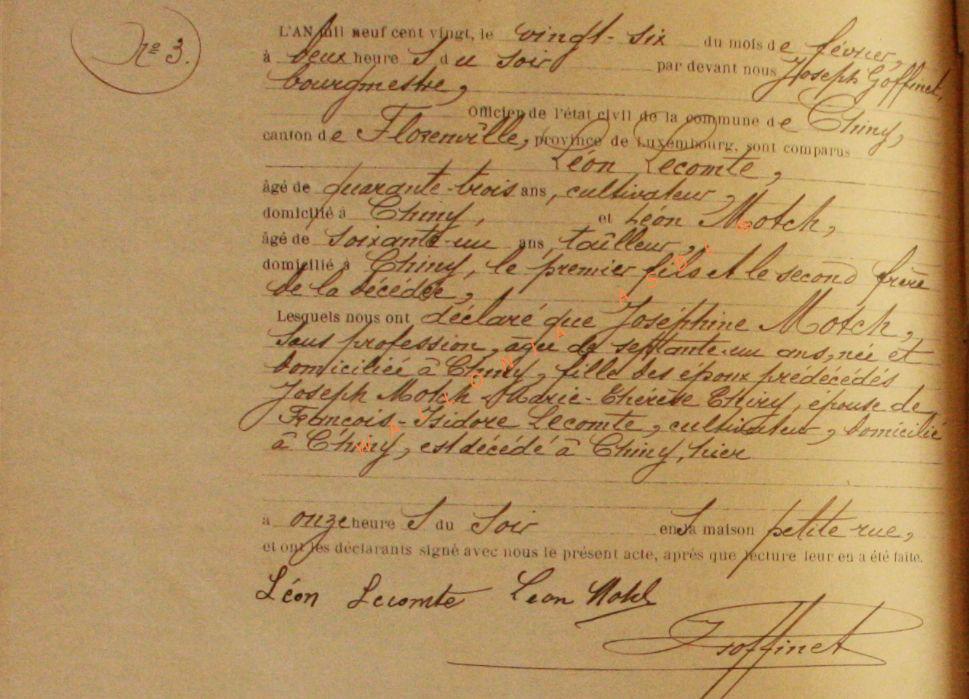 Nº 3.
L'AN mil neuf cent vingt, le vingt-six du mois de février,
à deux heure s du soir par devant nous Joseph Goffinet,
bourgmestre,
Officier de l'état civil de la commune de Chiny,
canton de Florenville, province de Luxembourg, sont comparus
Léon Lecomte,
âgé de quarante-trois ans, cultivateur,
domicilié à Chiny, et Léon Motch,
âgé de soixante-un ans, tailleur,
domicilié à Chiny, le premier fils et le second frère
de la décédée,
Lesquels nous ont déclaré que Joséphine Motch,
sans profession, âgée de septante-un ans, née et
domiciliée à Chiny, fille des époux prédécédés
Joseph Motch Marie-Thérèse Thiry, épouse de
François-Isidore Lecomte, cultivateur, domicilié
à Chiny, est décédé à Chiny, hier
à onze heure s du soir en sa maison petite rue,
et ont les déclarants signé avec nous le présent acte, après que lecture leur en a été faite.
Léon Lecomte Leon Motch
J Goffinet